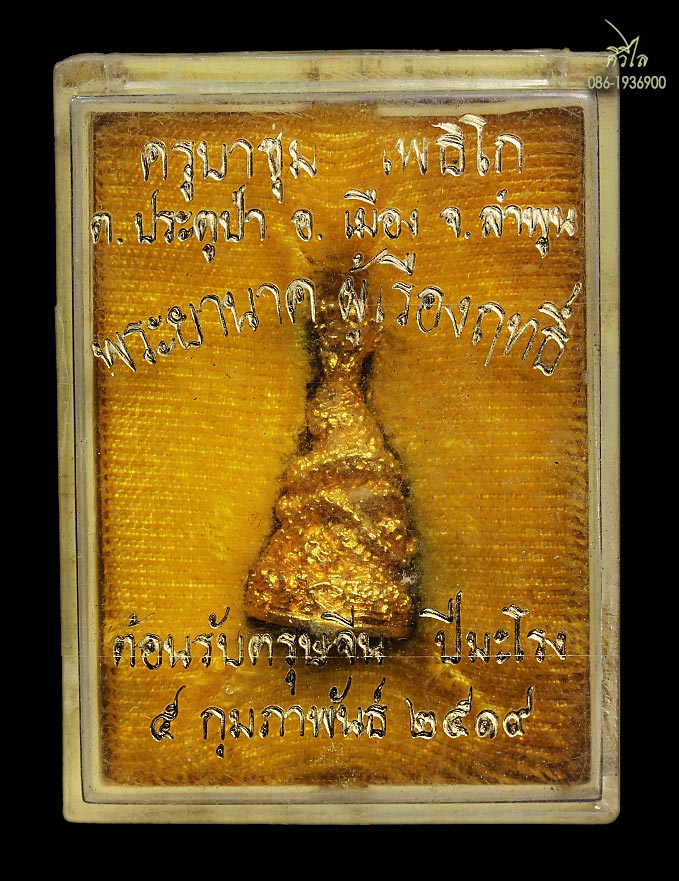 ศิวิไล
086-1936900
ครูบาชุ่ม เพธิโก
ต.ประตูป่า อ. เมือง จ.ลำพูน
พระยานาค ผู้เรืองฤทธิ์
ต้อนรับตรุษจีน ปีมะโรง
๕ กุมภาพันธ์ ๒๕๑๙